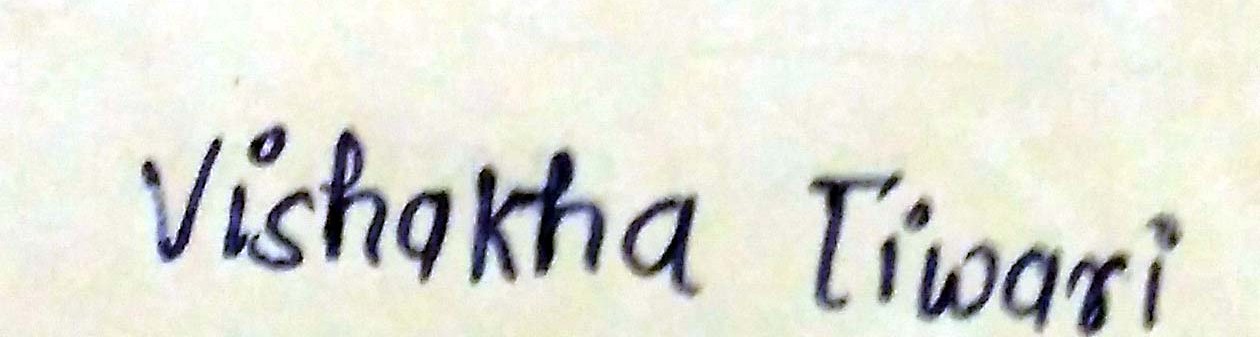 Vishakha Tiwari